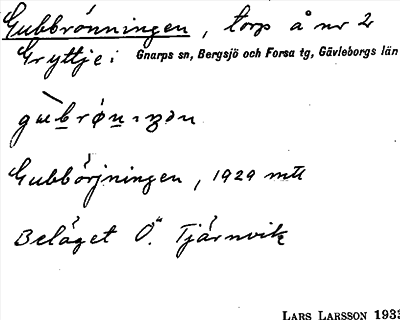 Gubbrönningen, torp å nr 2
Gryttje i Gnarps sn, Bergsjö och Forsa tg, Gävleborgs län
Gubbörjningen, 1929 mtl
Beläget Ö. Tjärnvik
LARS LARSSON 1933